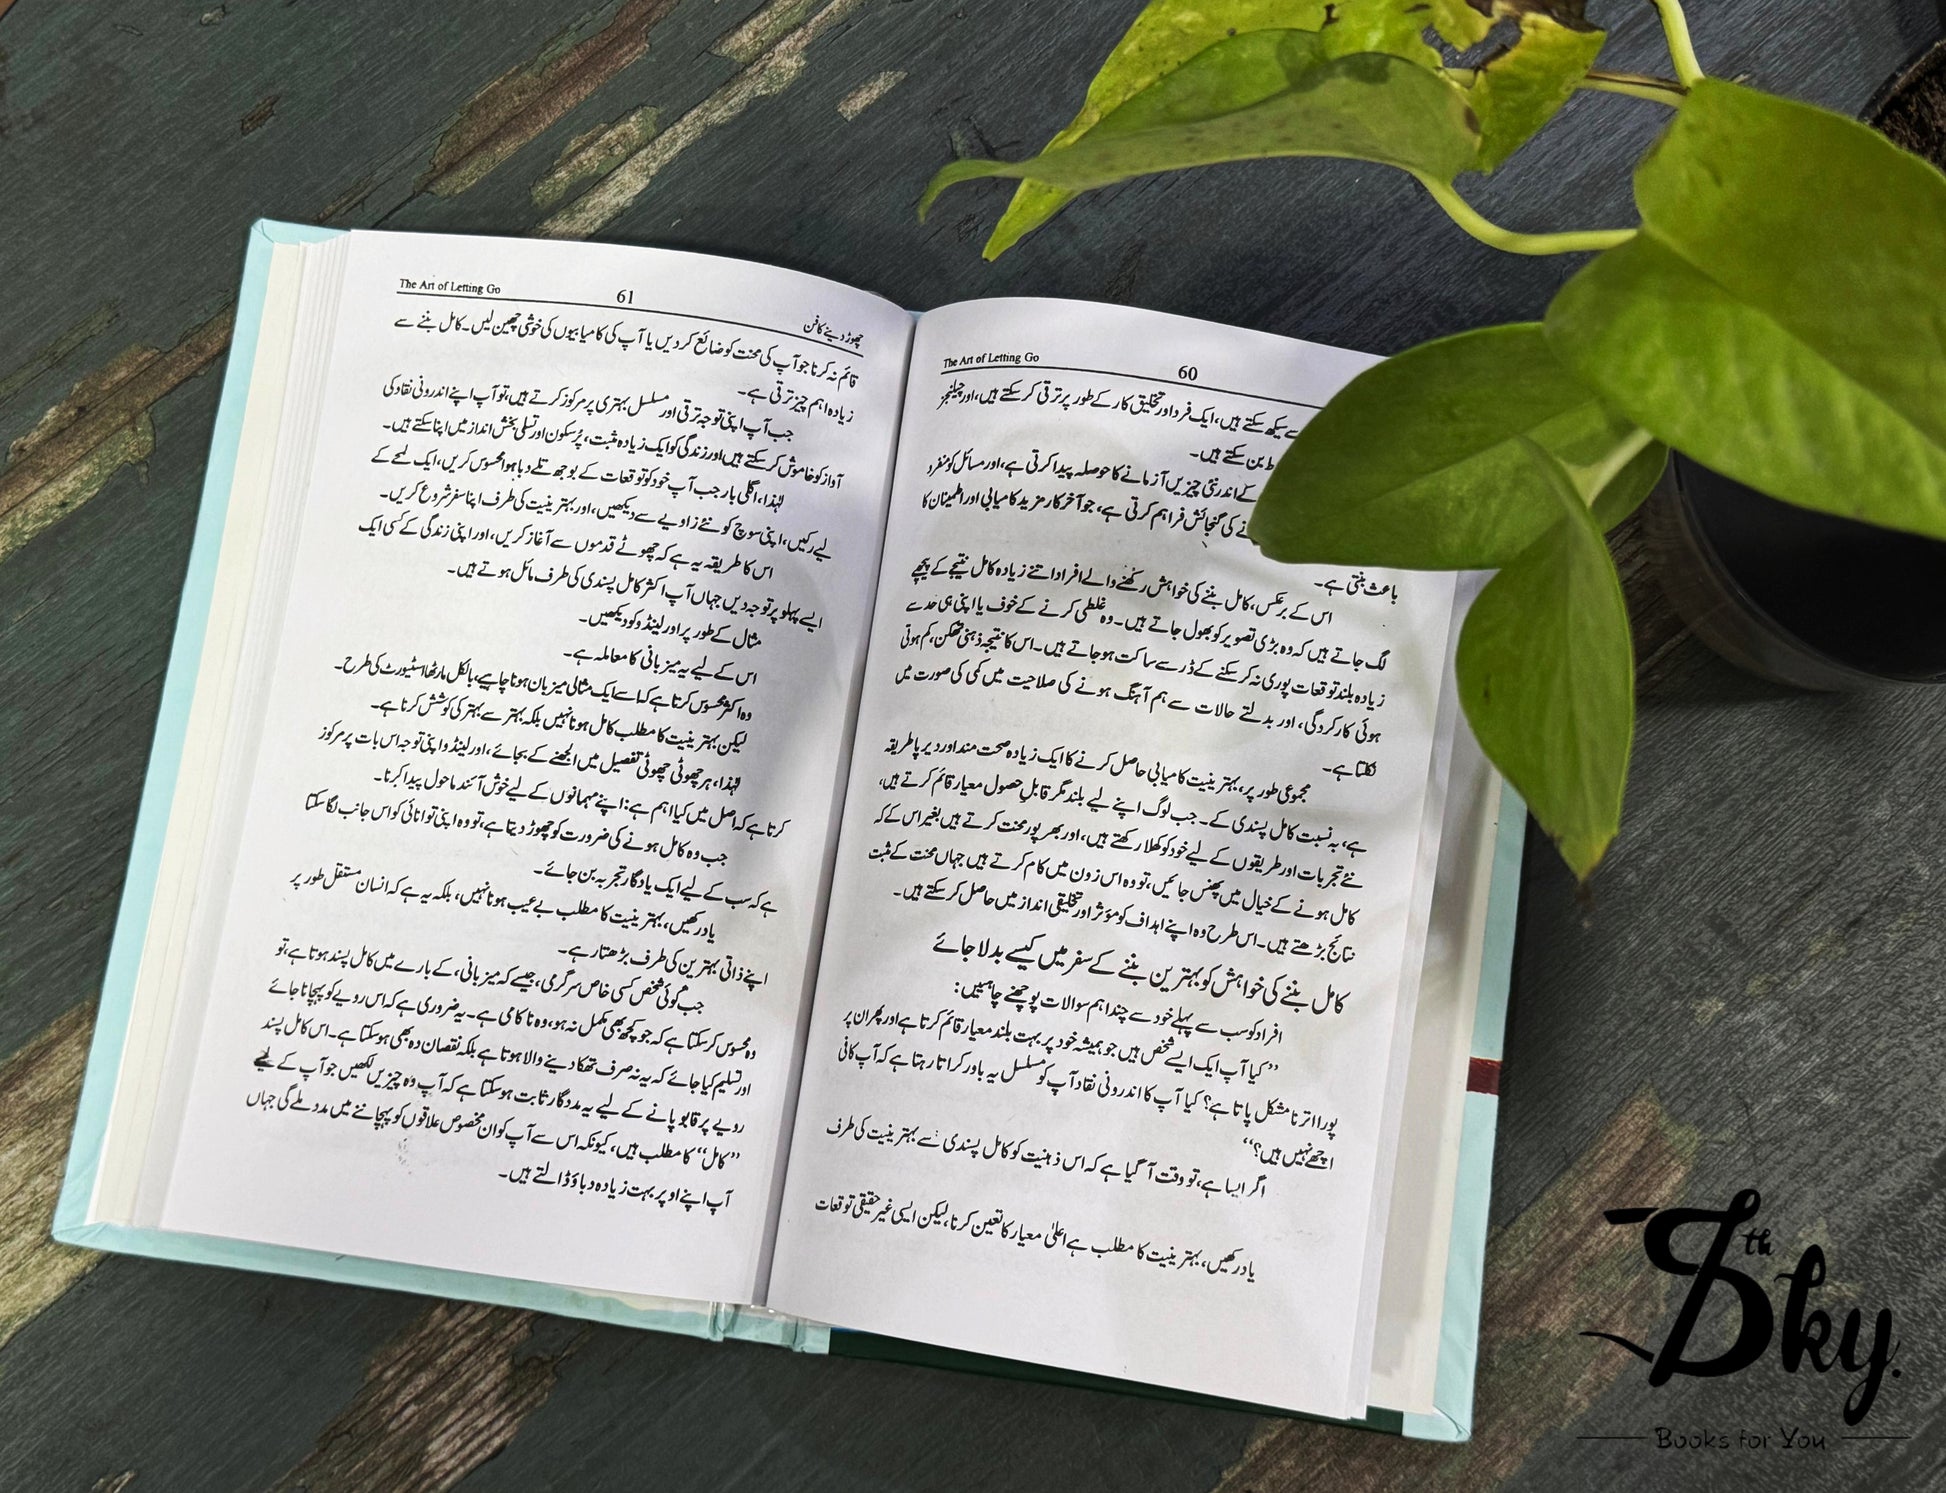 The Art of Letting Go
60
سے سیکھ سکتے ہیں، ایک فرد اور تخلیق کار کے طور پر ترقی کر سکتے ہیں، اور چیلنجز
بن سکتے ہیں۔
کے اندر نئی چیزیں آزمانے کا حوصلہ پیدا کرتی ہے، اور مسائل کو منفرد
نے کی گنجائش فراہم کرتی ہے، جو آخرکار مزید کامیابی اور اطمینان کا
باعث بنتی ہے۔
اس کے برعکس، کامل بننے کی خواہش رکھنے والے افراد اتنے زیادہ کامل نتیجے کے پیچھے
لگ جاتے ہیں کہ وہ بڑی تصویر کو بھول جاتے ہیں۔ وہ غلطی کرنے کے خوف یا اپنی ہی حد سے
زیادہ بلند توقعات پوری نہ کر سکنے کے ڈر سے ساکت ہو جاتے ہیں۔ اس کا نتیجہ ذہنی تھکن، کم ہوتی
ہوئی کارکردگی، اور بدلتے حالات سے ہم آہنگ ہونے کی صلاحیت میں کمی کی صورت میں
نکلتا ہے۔
مجموعی طور پر، بہترینیت کامیابی حاصل کرنے کا ایک زیادہ صحت مند اور دیرپا طریقہ
ہے، بہ نسبت کامل پسندی کے۔ جب لوگ اپنے لیے بلند مگر قابلِ حصول معیار قائم کرتے ہیں،
نئے تجربات اور طریقوں کے لیے خود کو کھلا رکھتے ہیں، اور بھرپور محنت کرتے ہیں بغیر اس کے کہ
کامل ہونے کے خیال میں پھنس جائیں، تو وہ اس زون میں کام کرتے ہیں جہاں محنت کے مثبت
نتائج بڑھتے ہیں۔ اس طرح وہ اپنے اہداف کو مؤثر اور تخلیقی انداز میں حاصل کر سکتے ہیں۔
کامل بننے کی خواہش کو بہترین بننے کے سفر میں کیسے بدلا جائے
افراد کو سب سے پہلے خود سے چند اہم سوالات پوچھنے چاہئیں:
”کیا آپ ایک ایسے شخص ہیں جو ہمیشہ خود پر بہت بلند معیار قائم کرتا ہے اور پھر ان پر
پورا اترنا مشکل پاتا ہے؟ کیا آپ کا اندرونی نقاد آپ کو مسلسل یہ باور کراتا رہتا ہے کہ آپ کافی
اچھے نہیں ہیں؟“
اگر ایسا ہے، تو وقت آ گیا ہے کہ اس ذہنیت کو کامل پسندی سے بہترینیت کی طرف
یاد رکھیں، بہترینیت کا مطلب ہے اعلیٰ معیار کا تعین کرنا، لیکن ایسی غیر حقیقی توقعات
The Art of Letting Go
61
چھوڑ دینے کا فن
قائم نہ کرنا جو آپ کی محنت کو ضائع کر دیں یا آپ کی کامیابیوں کی خوشی چھین لیں۔ کامل بننے سے
زیادہ اہم چیز ترقی ہے۔
جب آپ اپنی توجہ ترقی اور مسلسل بہتری پر مرکوز کرتے ہیں، تو آپ اپنے اندرونی نقاد کی
آواز کو خاموش کر سکتے ہیں اور زندگی کو ایک زیادہ مثبت، پُرسکون اور تسلی بخش انداز میں اپنا سکتے ہیں۔
لہٰذا، اگلی بار جب آپ خود کو توقعات کے بوجھ تلے دبا ہوا محسوس کریں، ایک لمحے کے
لیے رکیں، اپنی سوچ کو نئے زاویے سے دیکھیں، اور بہترینیت کی طرف اپنا سفر شروع کریں۔
اس کا طریقہ یہ ہے کہ چھوٹے قدموں سے آغاز کریں، اور اپنی زندگی کے کسی ایک
ایسے پہلو پر توجہ دیں جہاں آپ اکثر کامل پسندی کی طرف مائل ہوتے ہیں۔
مثال کے طور پر اورلینڈو کو دیکھیں۔
اس کے لیے یہ میزبانی کا معاملہ ہے۔
وہ اکثر محسوس کرتا ہے کہ اسے ایک مثالی میزبان ہونا چاہیے، بالکل مارتھا اسٹیورٹ کی طرح۔
لیکن بہترینیت کا مطلب کامل ہونا نہیں بلکہ بہتر سے بہتر کی کوشش کرنا ہے۔
لہٰذا، ہر چھوٹی چھوٹی تفصیل میں الجھنے کے بجائے، اورلینڈو اپنی توجہ اس بات پر مرکوز
کرتا ہے کہ اصل میں کیا اہم ہے: اپنے مہمانوں کے لیے خوش آئند ماحول پیدا کرنا۔
جب وہ کامل ہونے کی ضرورت کو چھوڑ دیتا ہے، تو وہ اپنی توانائی کو اس جانب لگا سکتا
ہے کہ سب کے لیے ایک یادگار تجربہ بن جائے۔
یاد رکھیں، بہترینیت کا مطلب بے عیب ہونا نہیں، بلکہ یہ ہے کہ انسان مستقل طور پر
اپنے ذاتی بہترین کی طرف بڑھتا رہے۔
جب کوئی شخص کسی خاص سرگرمی، جیسے کہ میزبانی، کے بارے میں کامل پسند ہوتا ہے، تو
وہ محسوس کر سکتا ہے کہ جو کچھ بھی مکمل نہ ہو، وہ ناکامی ہے۔ یہ ضروری ہے کہ اس رویے کو پہچانا جائے
اور تسلیم کیا جائے کہ یہ نہ صرف تھکا دینے والا ہوتا ہے بلکہ نقصان دہ بھی ہو سکتا ہے۔ اس کامل پسند
رویے پر قابو پانے کے لیے یہ مددگار ثابت ہو سکتا ہے کہ آپ وہ چیزیں لکھیں جو آپ کے لیے
”کامل“ کا مطلب ہیں، کیونکہ اس سے آپ کو ان مخصوص علاقوں کو پہچاننے میں مدد ملے گی جہاں
آپ اپنے اوپر بہت زیادہ دباؤ ڈالتے ہیں۔
7th Sky.
Books for You